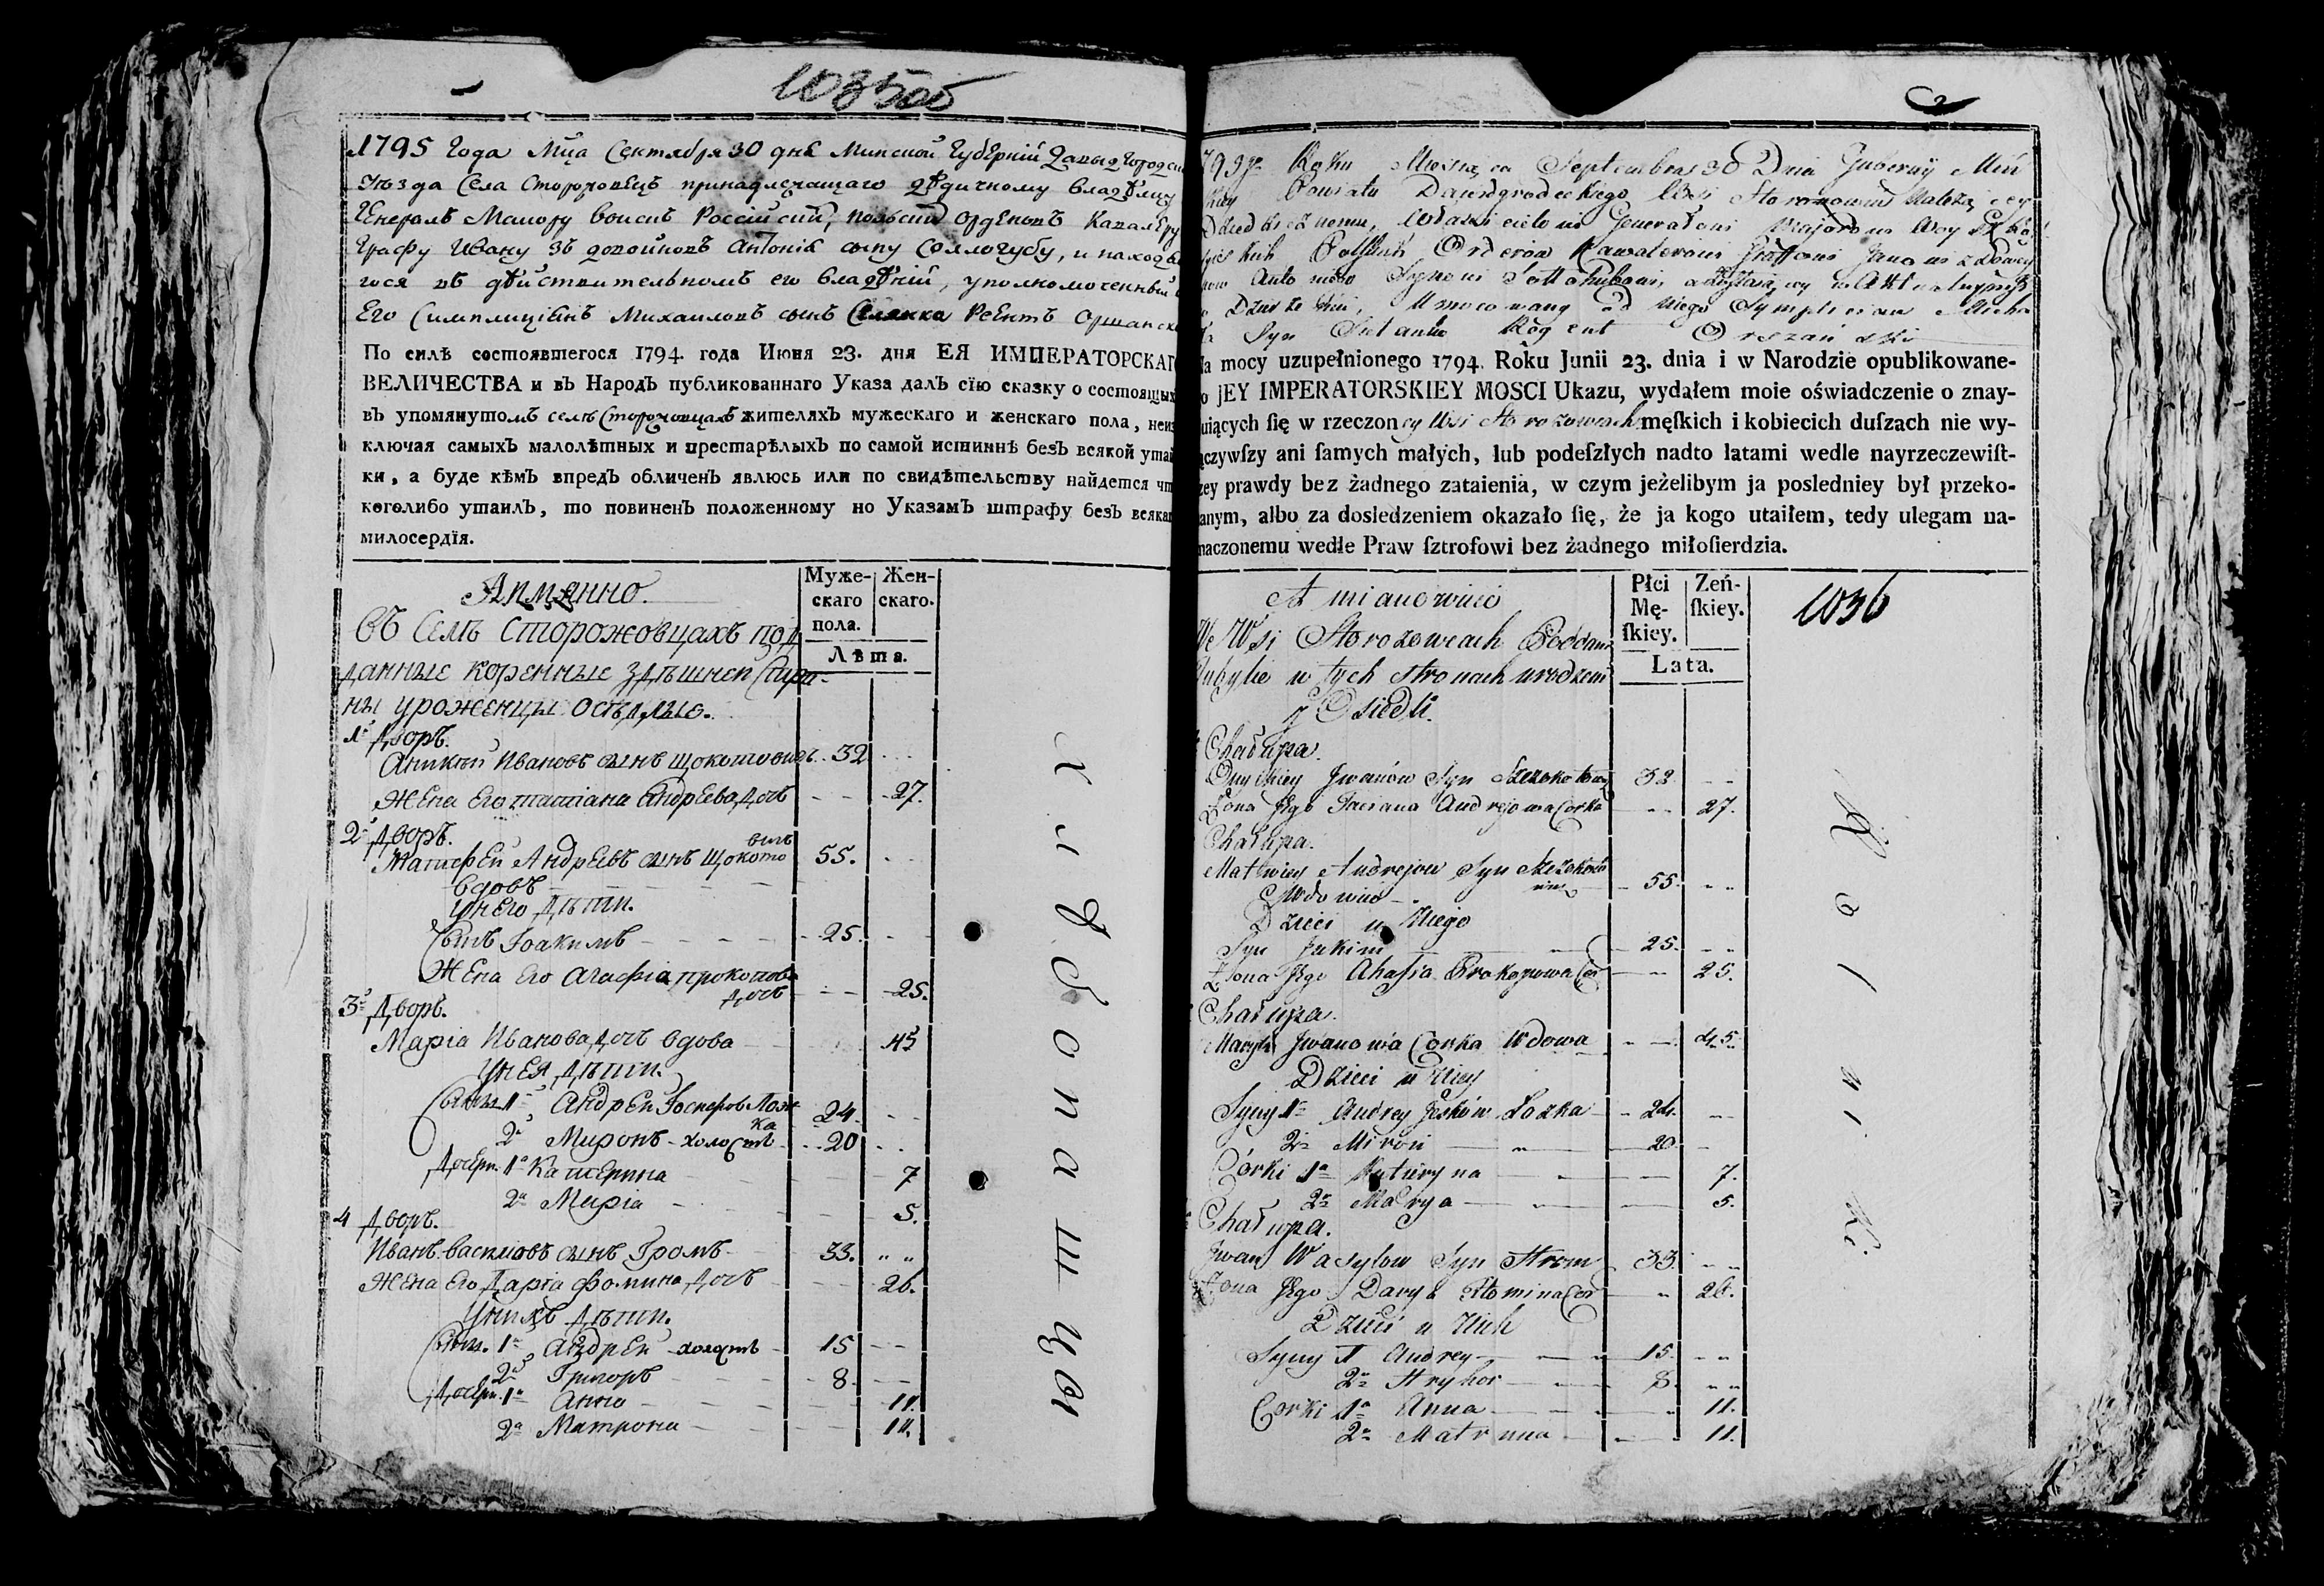 1035об
1795 Года Мца Сентября 30 дня Минской Губерніи Давыдгородск
Уѣзда Села Сторожовецъ принадлежащаго дѣдичному владѣлцу
Генералъ Маиору воискъ Россійскій, полскій орденовъ Кавалеру
Графу Ивану зъ довойновъ Антонія сыну Соллогубу, и наход
гося въ дѣйствительномъ его владѣніи, уполномоченный
Его Симплиціянъ Михаиловъ сынъ Селянка Реентъ Оршанск
По силѣ состоявшегося 1794. года Июня 23. дня ЕЯ ИМПЕРАТОРСКАГ
ВЕЛИЧЕСТВА и въ Народъ публикованнаго Указа далъ сїю сказку о состоящих
въ упомянутомъ селѣ Сторожовцахъ жителяхъ мужескаго и женскаго пола, неиз
ключая самыхъ малолѣтныхъ и престарѣлыхъ по самой истиннѣ безъ всякой утай
ки, а буде кѣмъ впредь обличенъ явлюсь или по свидѣтельству найдется чт
коголибо утаилъ, то повиненъ положенному по Указамъ штрафу безъ всякаг
милосердїя.
Муже-
скаго
пола.
Жен-
скаго.
Лѣта.
Аимянно.
Въ Селѣ Сторожовцахъ под
данные коренные здѣшней Стари-
ны уроженцы оседлые.
1й Дворъ.
Аникѣй Ивановъ сынъ Щокотовичъ 32
Жена Его татіана Андреева дочъ 27.
2й Дворъ.
Матфей Андреевъ сынъ Щокото 55.
вичъ
вдовъ
У него дѣти.
Сынъ Іоакимъ 25.
Жена Его Агафіа прокопова
дочъ 25.
3й Дворъ.
Маріа Иванова дочъ вдова 45
У нея дѣти.
Сыны 1й Андрей Іосифов Лож 24
ка
2й Миронъ холостъ 20
Дочери. 1я Катерина 7
2я Маріа 5.
4 Дворъ.
Иванъ васильовъ сынъ Громъ 33.
Жена Его Даріа фомина дочъ 26.
У нихъ дѣти.
Сыны. 1й Андрей холостъ 15
2й Григоръ 8
Дочери. 1я Анна 11.
2я Матрона 11.
2
Roku Miesiąca Septembra 30 Dnia Guberny Miń
skiey Powiatu Dawidgrodeckiego Wsi Storozowiec Należącey
Dziedzicznemu, Włascicielowi Generałowi Majorowi Woysk Ro
Polskich Orderów Kawalerowi Graffowi Janowi z Dowoy
now Antoniego Synowi Sołłohubowi,
Dzierżeniu, Umocowany od niego Symplician Micha
Syn Sielanko Regent Orszański
Na mocy uzupełnionego 1794. Roku Junii 23. dnia i w Narodzie opublikowane-
o JEY IMPERATORSKIEY MOSCI Ukazu, wydałem moie oświadczenie o znay-
uiących ſię w rzeczoney Wsi Storozowcach męſkich i kobiecich duſzach nie wy-
ączywſzy ani ſamych małych, lub podeſzłych nadto latami wedle nayrzeczewiſt-
zey prawdy bez żadnego zataienia, w czym jeżelibym ja posledniey był przeko-
anym, albo za dosledzeniem okazało ſię, że ja kogo utaiłem, tedy ulegam na-
naczonemu wedle Praw ſztrofowi bez żadnego miłoſierdzia.
Płci
Mę-
ſkiey.
Zeń-
ſkiey.
Lata.
1036
A mianowicie
We Wsi Storozowcach Poddani
w tych stronach urodzeni
y Osiedli.
Chałupa.
Onyskiey Jwanów Syn Szczokotowicz 32
Zona Jego Taciana Andrejowa Corka 27.
Chałupa.
Matwiey Andrejow Syn Szczokoto
wicz 55.
Wdowiec
Dzieci u Niego
Syn Jakim 25.
Zona Jego Ahafia Prokopowa Cor 25.
Chałupa.
Maryia Jwanowa Corka Wdowa 45.
Dzieci u Niey
Syny 1y Andrey Jozków Lozka 24.
2y Miron 20
Córki 1a Kateryna 7.
2a Marya 5.
Chałupa.
Jwan Wasylow Syn Hrom 33.
Zona Jego Darya Chomina Cor 26.
Dzieci u Nich
Syny 1 Andrey 15.
2y Hryhor 8.
Corki 1a Anna 11.
2a Matruna 11.